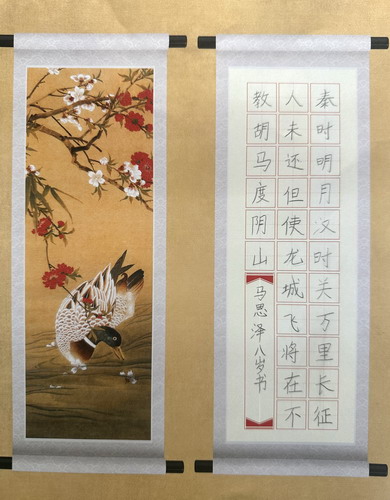 秦时明月汉时关万里长征
人未还但使龙城飞将在不
教胡马度阴山
马思泽八岁书